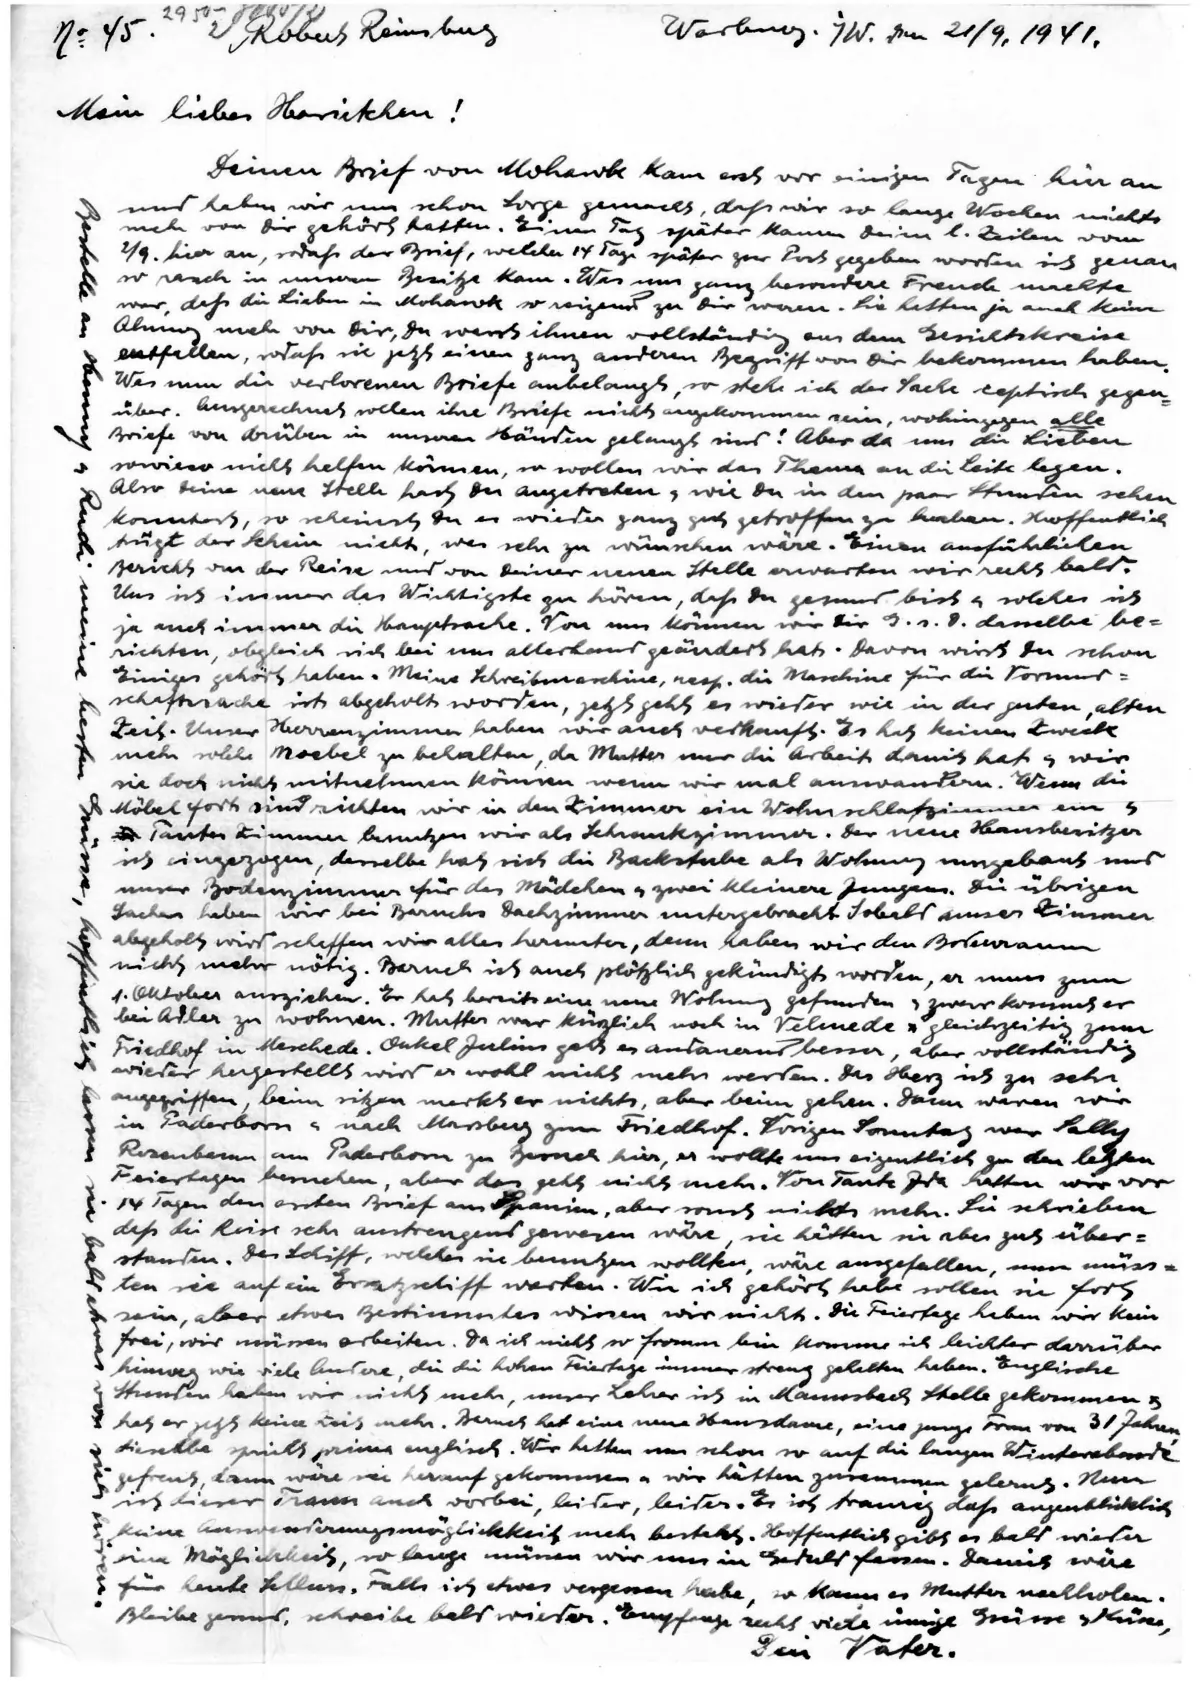 No 45. Robert Reinsberg Warburg. i/W. den 21/9. 1941.
Mein liebes Harietchen!
Deinen Brief von Mohawk kam erst vor einigen Tagen hier an
und haben wir uns schon Sorge gemacht, dass wir so lange Wochen nichts
mehr von Dir gehört hatten. Einen Tag später kamen Deine l. Zeilen vom
2/9. hier an, sodass der Brief, welcher 14 Tage später zur Post gegeben worden ist genau
so rasch in unseren Besitze kam. Was uns ganz besondere Freude machte
war, dass die Lieben in Mohawk so reizend zu Dir waren. Sie hatten ja auch keine
Ahnung mehr von Dir, Du warst ihnen vollständig aus dem Gesichtskreise
entfallen, sodass sie jetzt einen ganz anderen Begriff von Dir bekommen haben.
Was nun die verlorenen Briefe anbelangt, so stehe ich der Sache ceptisch gegen=
über. Ausgerechnet sollen ihre Briefe nicht angekommen sein, wohingegen alle
Briefe von drüben in unseren Händen gelangt sind! Aber da uns die Lieben
sowieso nicht helfen können, so wollen wir das Thema an die Seite legen.
Also Deine neue Stelle hast Du angetreten & wie Du in den paar Stunden sehen
konntest, so scheinst Du es wieder ganz gut getroffen zu haben. Hoffentlich
trügt der Schein nicht, was sehr zu wünschen wäre. Einen ausführlichen
Bericht von der Reise und von Deiner neuen Stelle erwarten wir recht bald.
Uns ist immer das Wichtigste zu hören, dass Du gesund bist & solches ist
ja auch immer die Hauptsache. Von uns können wir Dir G. s. D. dasselbe be=
richten, obgleich sich bei uns allerhand geändert hat. Davon wirst Du schon
Einiges gehört haben. Meine Schreibmaschine, resp. die Maschine für die Vormund=
schaftsache ist abgeholt worden, jetzt geht es wieder wie in der guten, alten
Zeit. Unser Herrenzimmer haben wir auch verkauft. Es hat keinen Zweck
mehr solche Moebel zu behalten, da Mutter nur die Arbeit damit hat & wir
sie doch nicht mitnehmen können wenn wir mal auswandern. Wenn die
Möbel fort sind richten wir in den Zimmer ein Wohnschlafzimmer ein &
Tantes Zimmer benutzen wir als Schrankzimmer. Der neue Hausbesitzer
ist eingezogen, derselbe hat sich die Backstube als Wohnung umgebaut und
unser Bodenzimmer für das Mädchen & zwei kleinere Jungens. Die übrigen
Sachen haben wir bei Baruchs Dachzimmer untergebracht. Sobald unser Zimmer
abgeholt wird schaffen wir alles herunter, denn haben wir den Bodenraum
nicht mehr nötig. Baruch ist auch plötzlich gekündigt worden, er muss zum
1. Oktober ausziehen. Er hat bereits eine neue Wohnung gefunden & zwar kommt er
bei Adler zu wohnen. Mutter war kürzlich noch in Velmede & gleichzeitig zum
Friedhof in Meschede. Onkel Julius geht es andauernd besser, aber vollständig
wieder hergestellt wird er wohl nicht mehr werden. Das Herz ist zu sehr
angegriffen, beim sitzen merkt er nichts, aber beim gehen. Dann waren wir
in Paderborn & nach Marsberg zum Friedhof. Vorigen Sonntag war Sally
Rosenbaum aus Paderborn zu Besuch hier, er wollte uns eigentlich zu den letzten
Feiertagen besuchen, aber das geht nicht mehr. Von Tante Ida hatten wir vor
14 Tagen den ersten Brief aus Spanien, aber sonst nichts mehr. Sie schrieben
dass die Reise sehr anstrengend gewesen wäre, sie hätten sie aber gut über=
standen. Das Schiff, welches sie benutzen wollten, wäre ausgefallen, nun müss=
ten sie auf ein Ersatzschiff warten. Wie ich gehört habe sollen sie fort
sein, aber etwas Bestimmtes wissen wir nicht. Die Feiertage haben wir kein
frei, wir müssen arbeiten. Da ich nicht so fromm bin komme ich leichter darüber
hinweg wie viele Andere, die die hohen Feiertage immer streng gehalten haben. Englische
Stunden haben wir nicht mehr, unser Lehrer ist in Mannsbach Stelle gekommen &
hat er jetzt keine Zeit mehr. Baruch hat eine neue Hausdame, eine junge Frau von 31 Jahren,
dieselbe spricht prima englisch. Wir hatten uns schon so auf die langen Winterabende
gefreut, dann wäre sie herauf gekommen & wir hätten zusammen gelernt. Nun
ist dieser Traum auch vorbei, leider, leider. Es ist traurig dass augenblicklich
keine Auswanderungsmöglichkeit mehr besteht. Hoffentlich gibt es bald wieder
eine Möglichkeit, so lange müssen wir uns in Geduld fassen. Damit wäre
für heute Schluss. Falls ich etwas vergessen habe, so kann es Mutter nachholen.
Bleibe gesund, schreibe bald wieder. Empfange recht viele innige Grüsse & Küsse,
Dein Vater.
Bestelle an Henny & Rudi meine besten Grüsse, hoffentlich lassen sie bald etwas von sich hören.